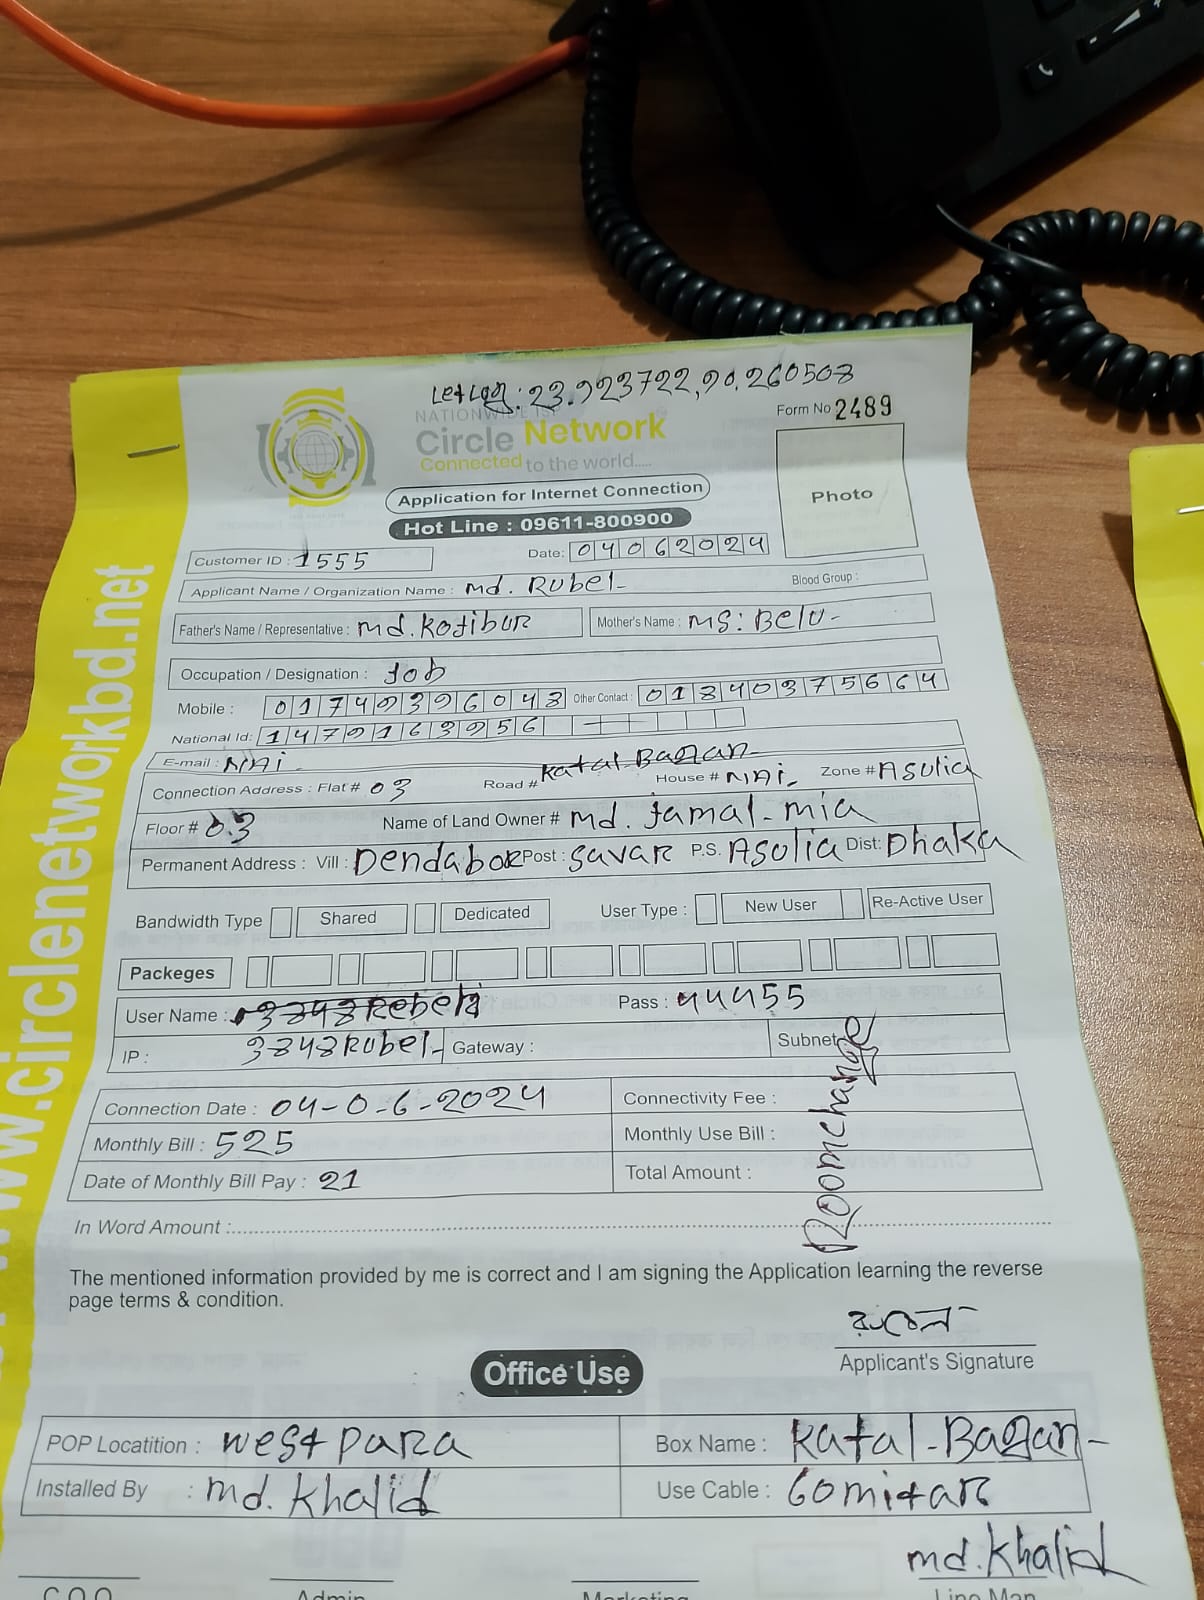 Let Log: 23.923722,90.260508
NATIONWIDE ISP
Circle Network
Connected to the world.....
Form No 2489
Photo
Application for Internet Connection
Hot Line : 09611-800900
Customer ID : 1555
Date: 04062024
Applicant Name / Organization Name : md. Rubel
Blood Group :
Father's Name / Representative : md. Kotibur
Mother's Name : MS: Belu
Occupation / Designation : Job
Mobile : 01749396043 Other Contact : 01840375664
National Id: 1479163956
E-mail : NAi
Connection Address : Flat # 03 Road # Katal-Bagan House # NAi Zone # Asulia
Floor # 03 Name of Land Owner # md. Jamal-mia
Permanent Address : Vill : Dendabor Post : Savar P.S. Asulia Dist: Dhaka
Bandwidth Type Shared Dedicated User Type : New User Re-Active User
Packeges
User Name : Pass : 44455
IP : 3848Rubel Gateway : Subnet
Roomchange
Connection Date : 04-0-6-2024 Connectivity Fee :
Monthly Bill : 525 Monthly Use Bill :
Date of Monthly Bill Pay : 21 Total Amount :
In Word Amount :
The mentioned information provided by me is correct and I am signing the Application learning the reverse
page terms & condition.
রুবেল
Applicant's Signature
Office Use
POP Locatition : West para Box Name : Katal-Bagan-
Installed By : md. Khalid Use Cable : 60mitar
md. Khalid
C.O.O Admin Marketing Line Man
www.circlenetworkbd.net